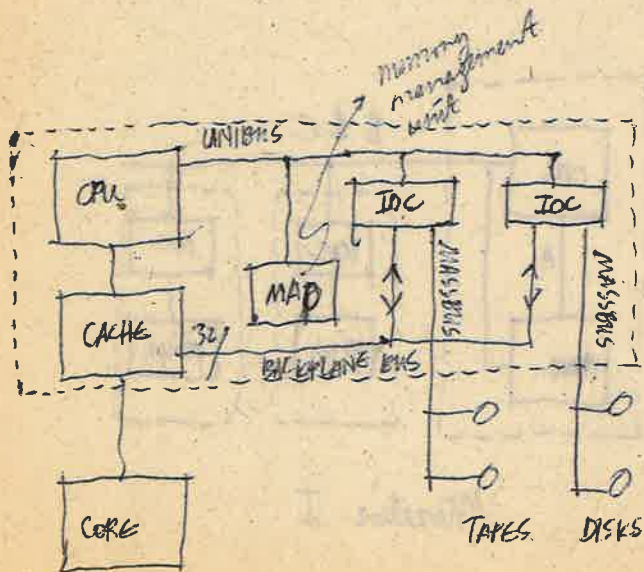 memory
management
unit
UNIBUS
CPU
IOC
IOC
MAP
MASSBUS
MASSBUS
CACHE
32
BACKPLANE BUS
CORE
TAPES.
DISKS